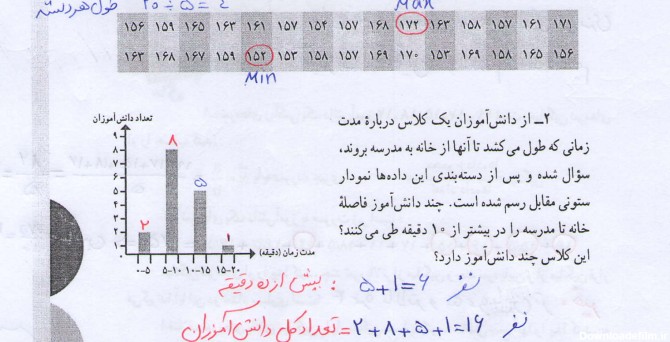 طول هر دسته 20 ÷ 5 = 4
Max
۱۵۶ ۱۵۹ ۱۶۵ ۱۶۳ ۱۶۱ ۱۵۷ ۱۵۴ ۱۵۷ ۱۶۸ ۱۷۲ ۱۶۳ ۱۵۸ ۱۵۷ ۱۶۱ ۱۷۱
۱۶۳ ۱۶۸ ۱۶۷ ۱۵۹ ۱۵۲ ۱۵۳ ۱۵۸ ۱۵۷ ۱۶۹ ۱۷۰ ۱۵۳ ۱۶۹ ۱۵۸ ۱۶۵ ۱۵۶
Min
۲ــ از دانش‌آموزان یک کلاس درباره مدت
زمانی که طول می‌کشد تا آنها از خانه به مدرسه بروند،
سؤال شده و پس از دسته‌بندی این داده‌ها نمودار
ستونی مقابل رسم شده است. چند دانش‌آموز فاصلهٔ
خانه تا مدرسه را در بیشتر از ۱۰ دقیقه طی می‌کنند؟
این کلاس چند دانش‌آموز دارد؟
تعداد دانش‌آموزان
۹
۸
۷
۶
۵
۴
۳
۲
۱
۲ ۸ ۵ ۱
۰-۵ ۵-۱۰ ۱۰-۱۵ ۱۵-۲۰
مدت زمان (دقیقه)
بیش از ده دقیقه : ۵+۱=۶ نفر
تعداد کل دانش آموزان = ۲+۸+۵+۱=۱۶ نفر